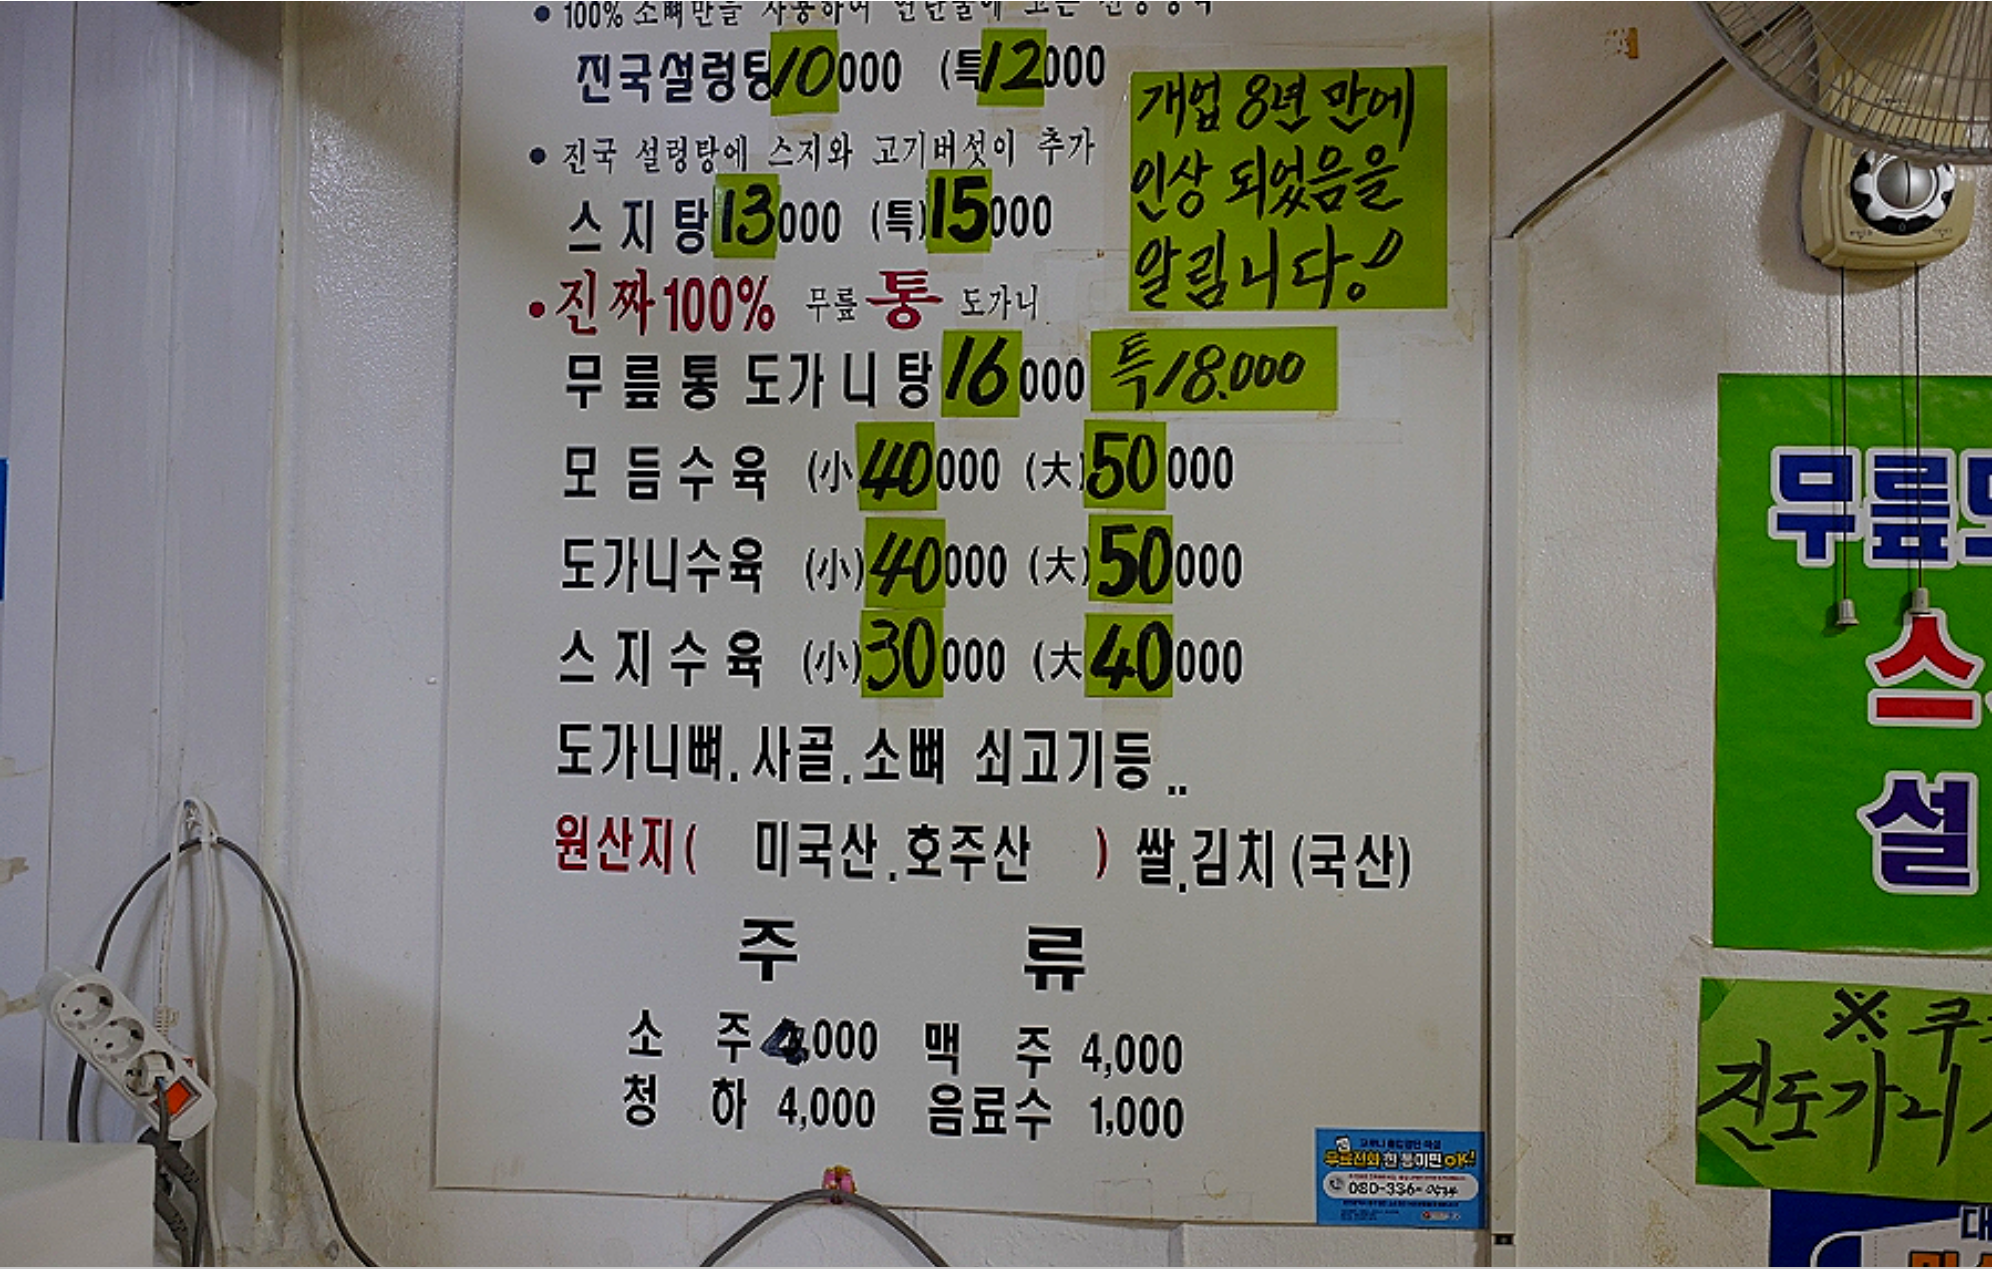 • 100% 소뼈만을 사용하여
진국설렁탕 10000 (특 12000
• 진국 설렁탕에 스지와 고기버섯이 추가
스지탕 13000 (특) 15000
개업 8년 만에
인상 되었음을
알립니다!
• 진짜 100% 무릎 통 도가니
무릎통 도가니탕 16000 특 18.000
모듬수육 (小 40000 (大) 50000
도가니수육 (小) 40000 (大) 50000
스지수육 (小) 30000 (大 40000
도가니뼈.사골.소뼈 쇠고기등..
원산지( 미국산.호주산 ) 쌀.김치(국산)
주 류
소 주 4,000 맥 주 4,000
청 하 4,000 음료수 1,000
무릎
스
설
※
진도가니
무료전화 한 통이면 OK!